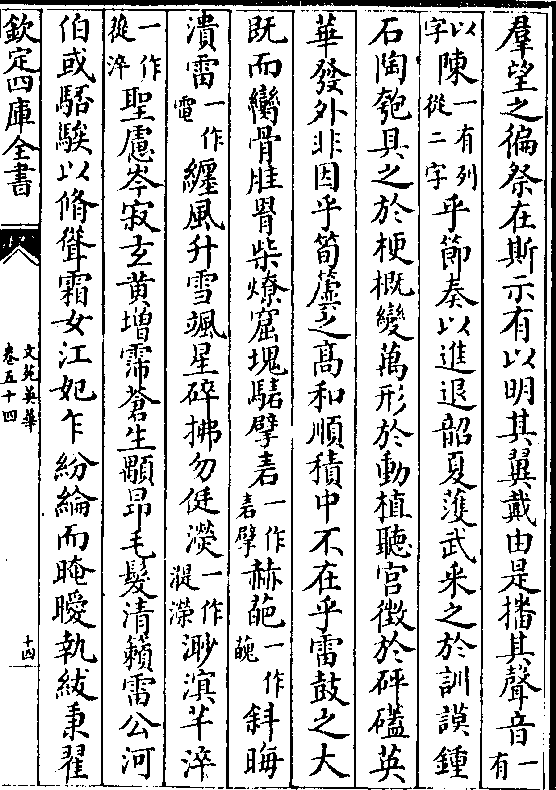 羣望之徧祭在斯示有以明其翼戴由是播其聲音一有
以字陳一有列從二字乎節奏以進退韶夏濩武采之於訓謨鍾
石陶匏具之於梗概變萬形於動植聽宮徴於砰礚英
華發外非因乎筍簴之高和順積中不在乎雷鼓之大
既而臠骨膟膋柴燎窟塊騞擘砉一作砉擘赫葩一作䔇斜晦
潰雷一作電纒風升雪颯星碎拂勿侹濙一作漎濴渺滇芊淬
一作從淬聖慮岑寂玄黄增霈蒼生顒昂毛髮清籟雷公河
伯或駋騃以脩聳霜女江妃乍紛綸而晻曖執紱秉翟
欽定四庫全書
文苑英華
卷五十四
十四